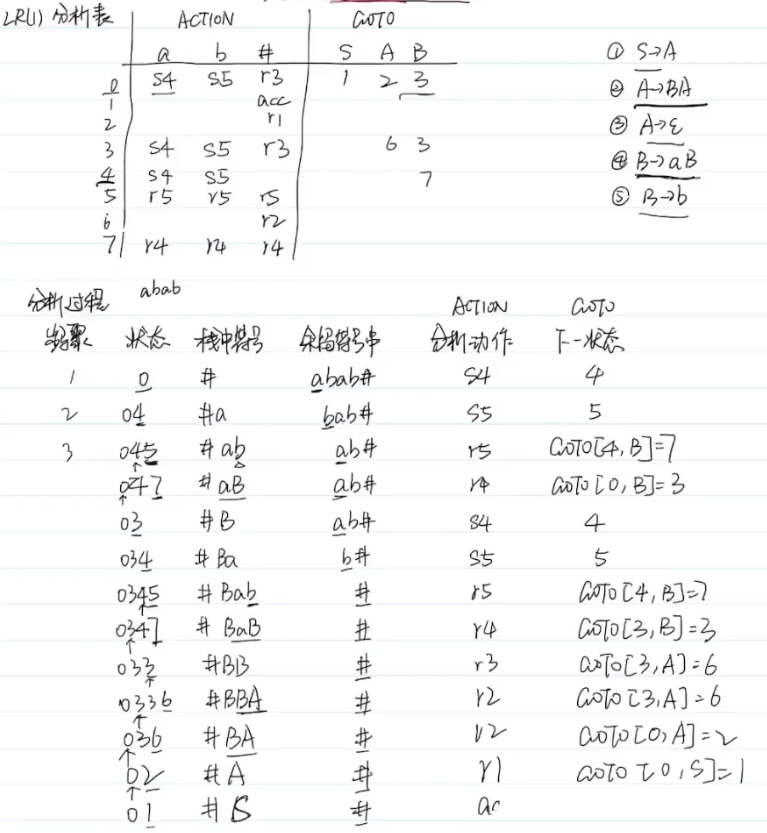 LR(1) 分析表 ACTION GOTO
a b # S A B
0 S4 S5 r3 1 2 3 ① S→A
1 acc ② A→BA
2 r1 ③ A→ε
3 S4 S5 r3 6 3 ④ B→aB
4 S4 S5 7 ⑤ B→b
5 r5 r5 r5
6 r2
7 r4 r4 r4
分析过程 abab ACTION GOTO
步骤 状态 栈中符号 余留符号串 分析动作 下一状态
1 0 # abab# S4 4
2 04 #a bab# S5 5
3 045 #ab ab# r5 GOTO[4,B]=7
047 #aB ab# r4 GOTO[0,B]=3
03 #B ab# S4 4
034 #Ba b# S5 5
0345 #Bab # r5 GOTO[4,B]=7
0347 #BaB # r4 GOTO[3,B]=3
033 #BB # r3 GOTO[3,A]=6
0336 #BBA # r2 GOTO[3,A]=6
036 #BA # r2 GOTO[0,A]=2
02 #A # r1 GOTO[0,S]=1
01 #S # ac